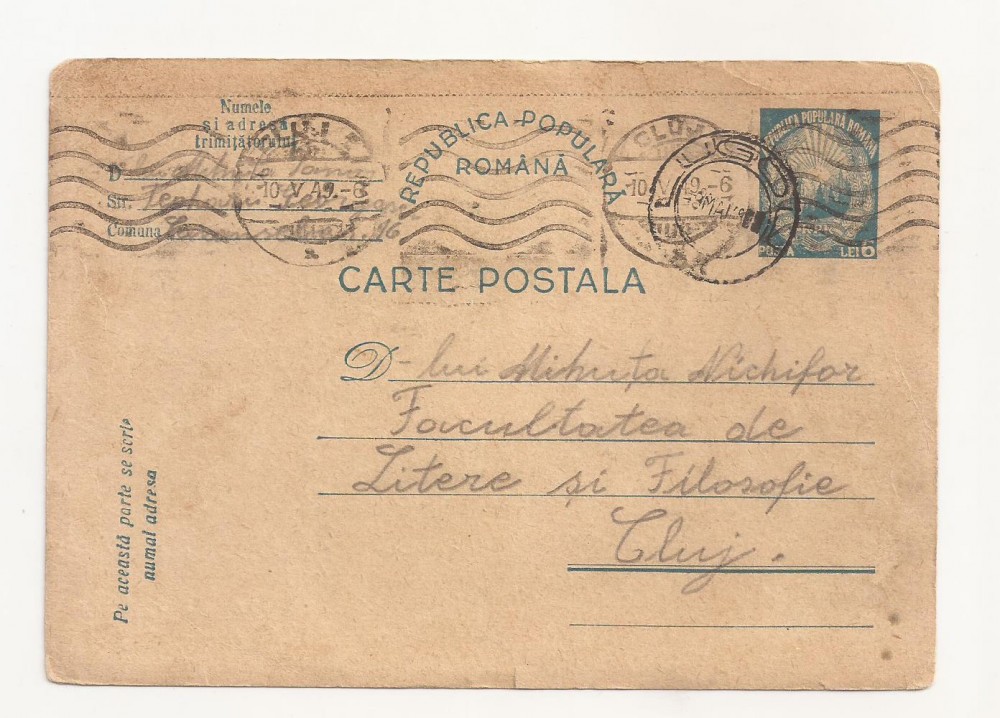 Numele
și adresa
trimițătorului
D
Str.
Comuna
CLUJ
10.V 49.-6
REPUBLICA POPULARĂ
ROMÂNĂ
CLUJ
10.V 49.-6
LUGOJ
MAI
REPUBLICA POPULARA ROMANA
POSTA LEI 6
CARTE POSTALA
D-lui Mihuța Nichifor
Facultatea de
Litere și Filosofie
Cluj.
Pe această parte se scrie
numai adresa